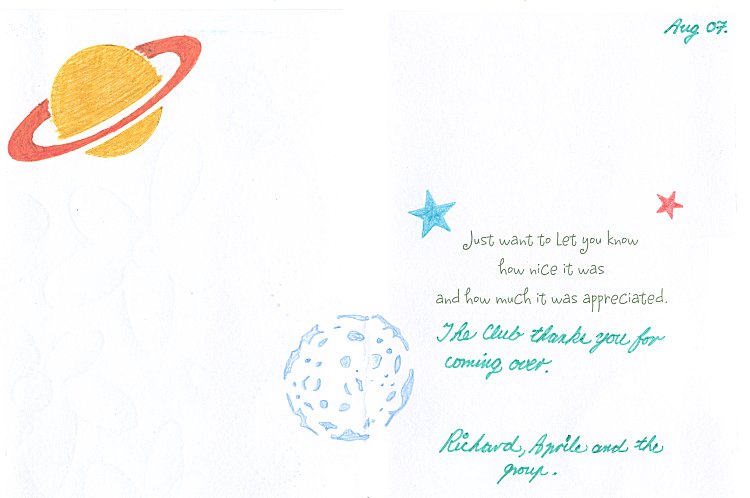 Aug 07.
Just want to let you know
how nice it was
and how much it was appreciated.
The Club thanks you for
coming over.
Richard, Aprile and the
group.